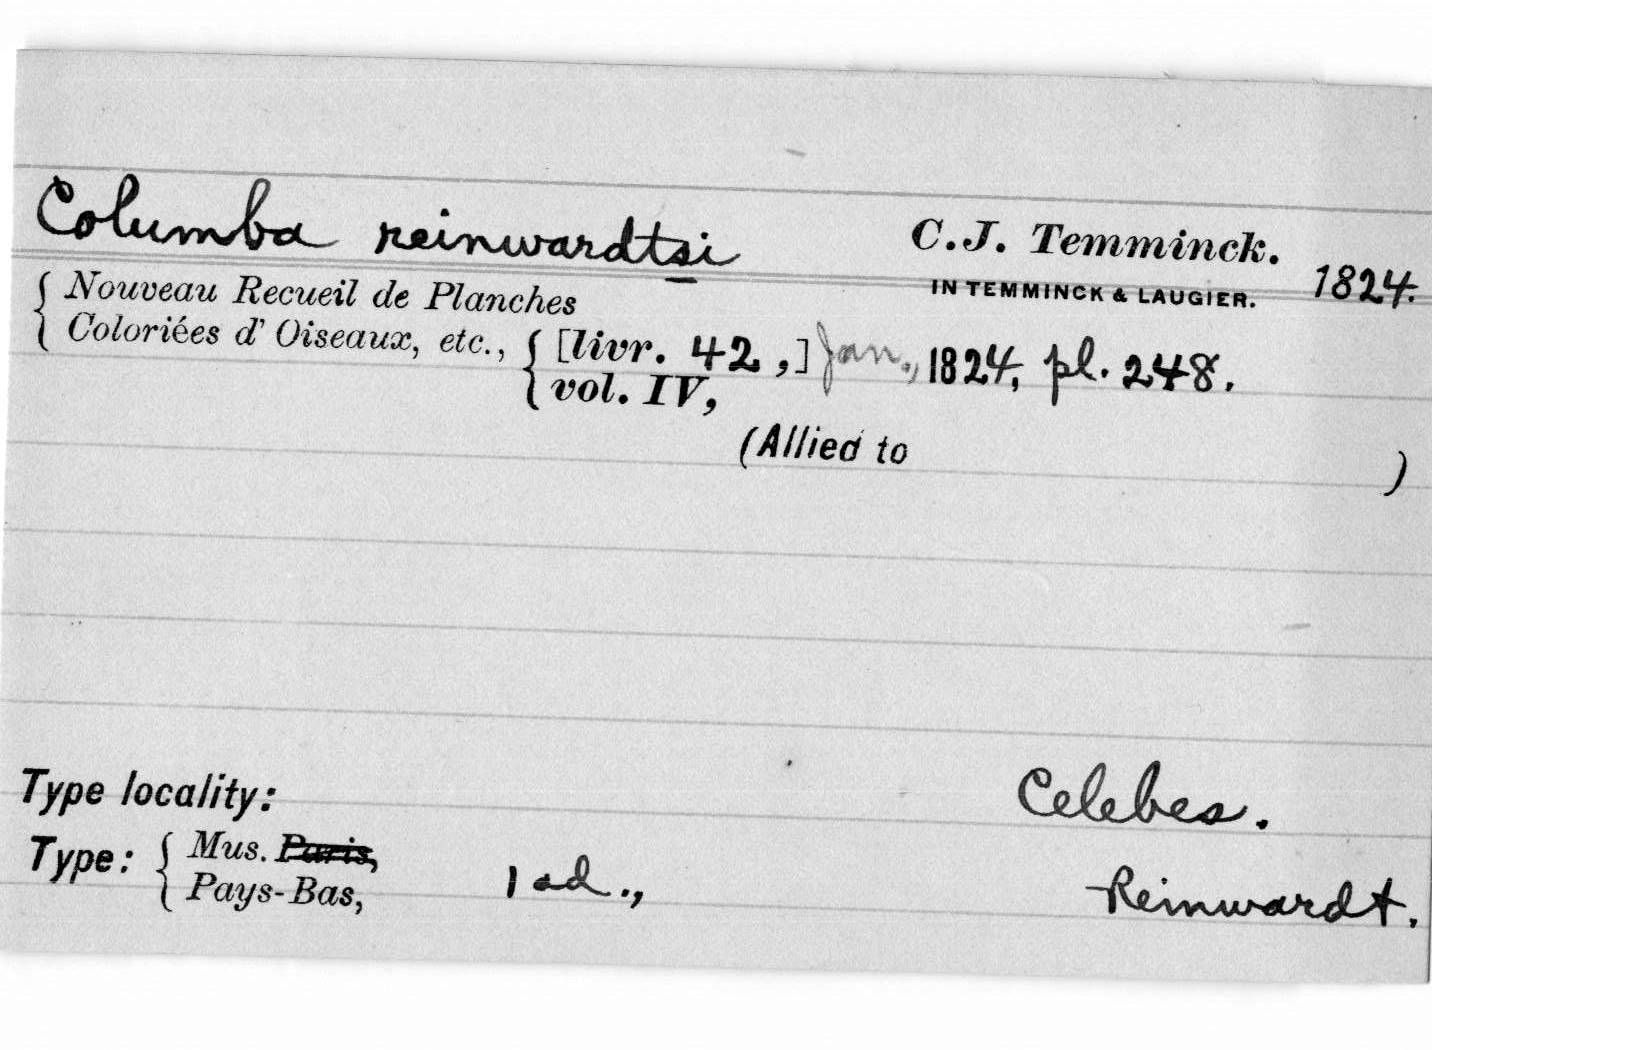 Columba reinwardtsi C.J. Temminck.
IN TEMMINCK & LAUGIER. 1824.
Nouveau Recueil de Planches
Coloriées d' Oiseaux, etc., [livr. 42,] Jan., 1824, pl. 248.
vol. IV,
(Allied to )
Type locality: Celebes.
Type: Mus. Paris,
Pays-Bas, 1 ad., Reinwardt.